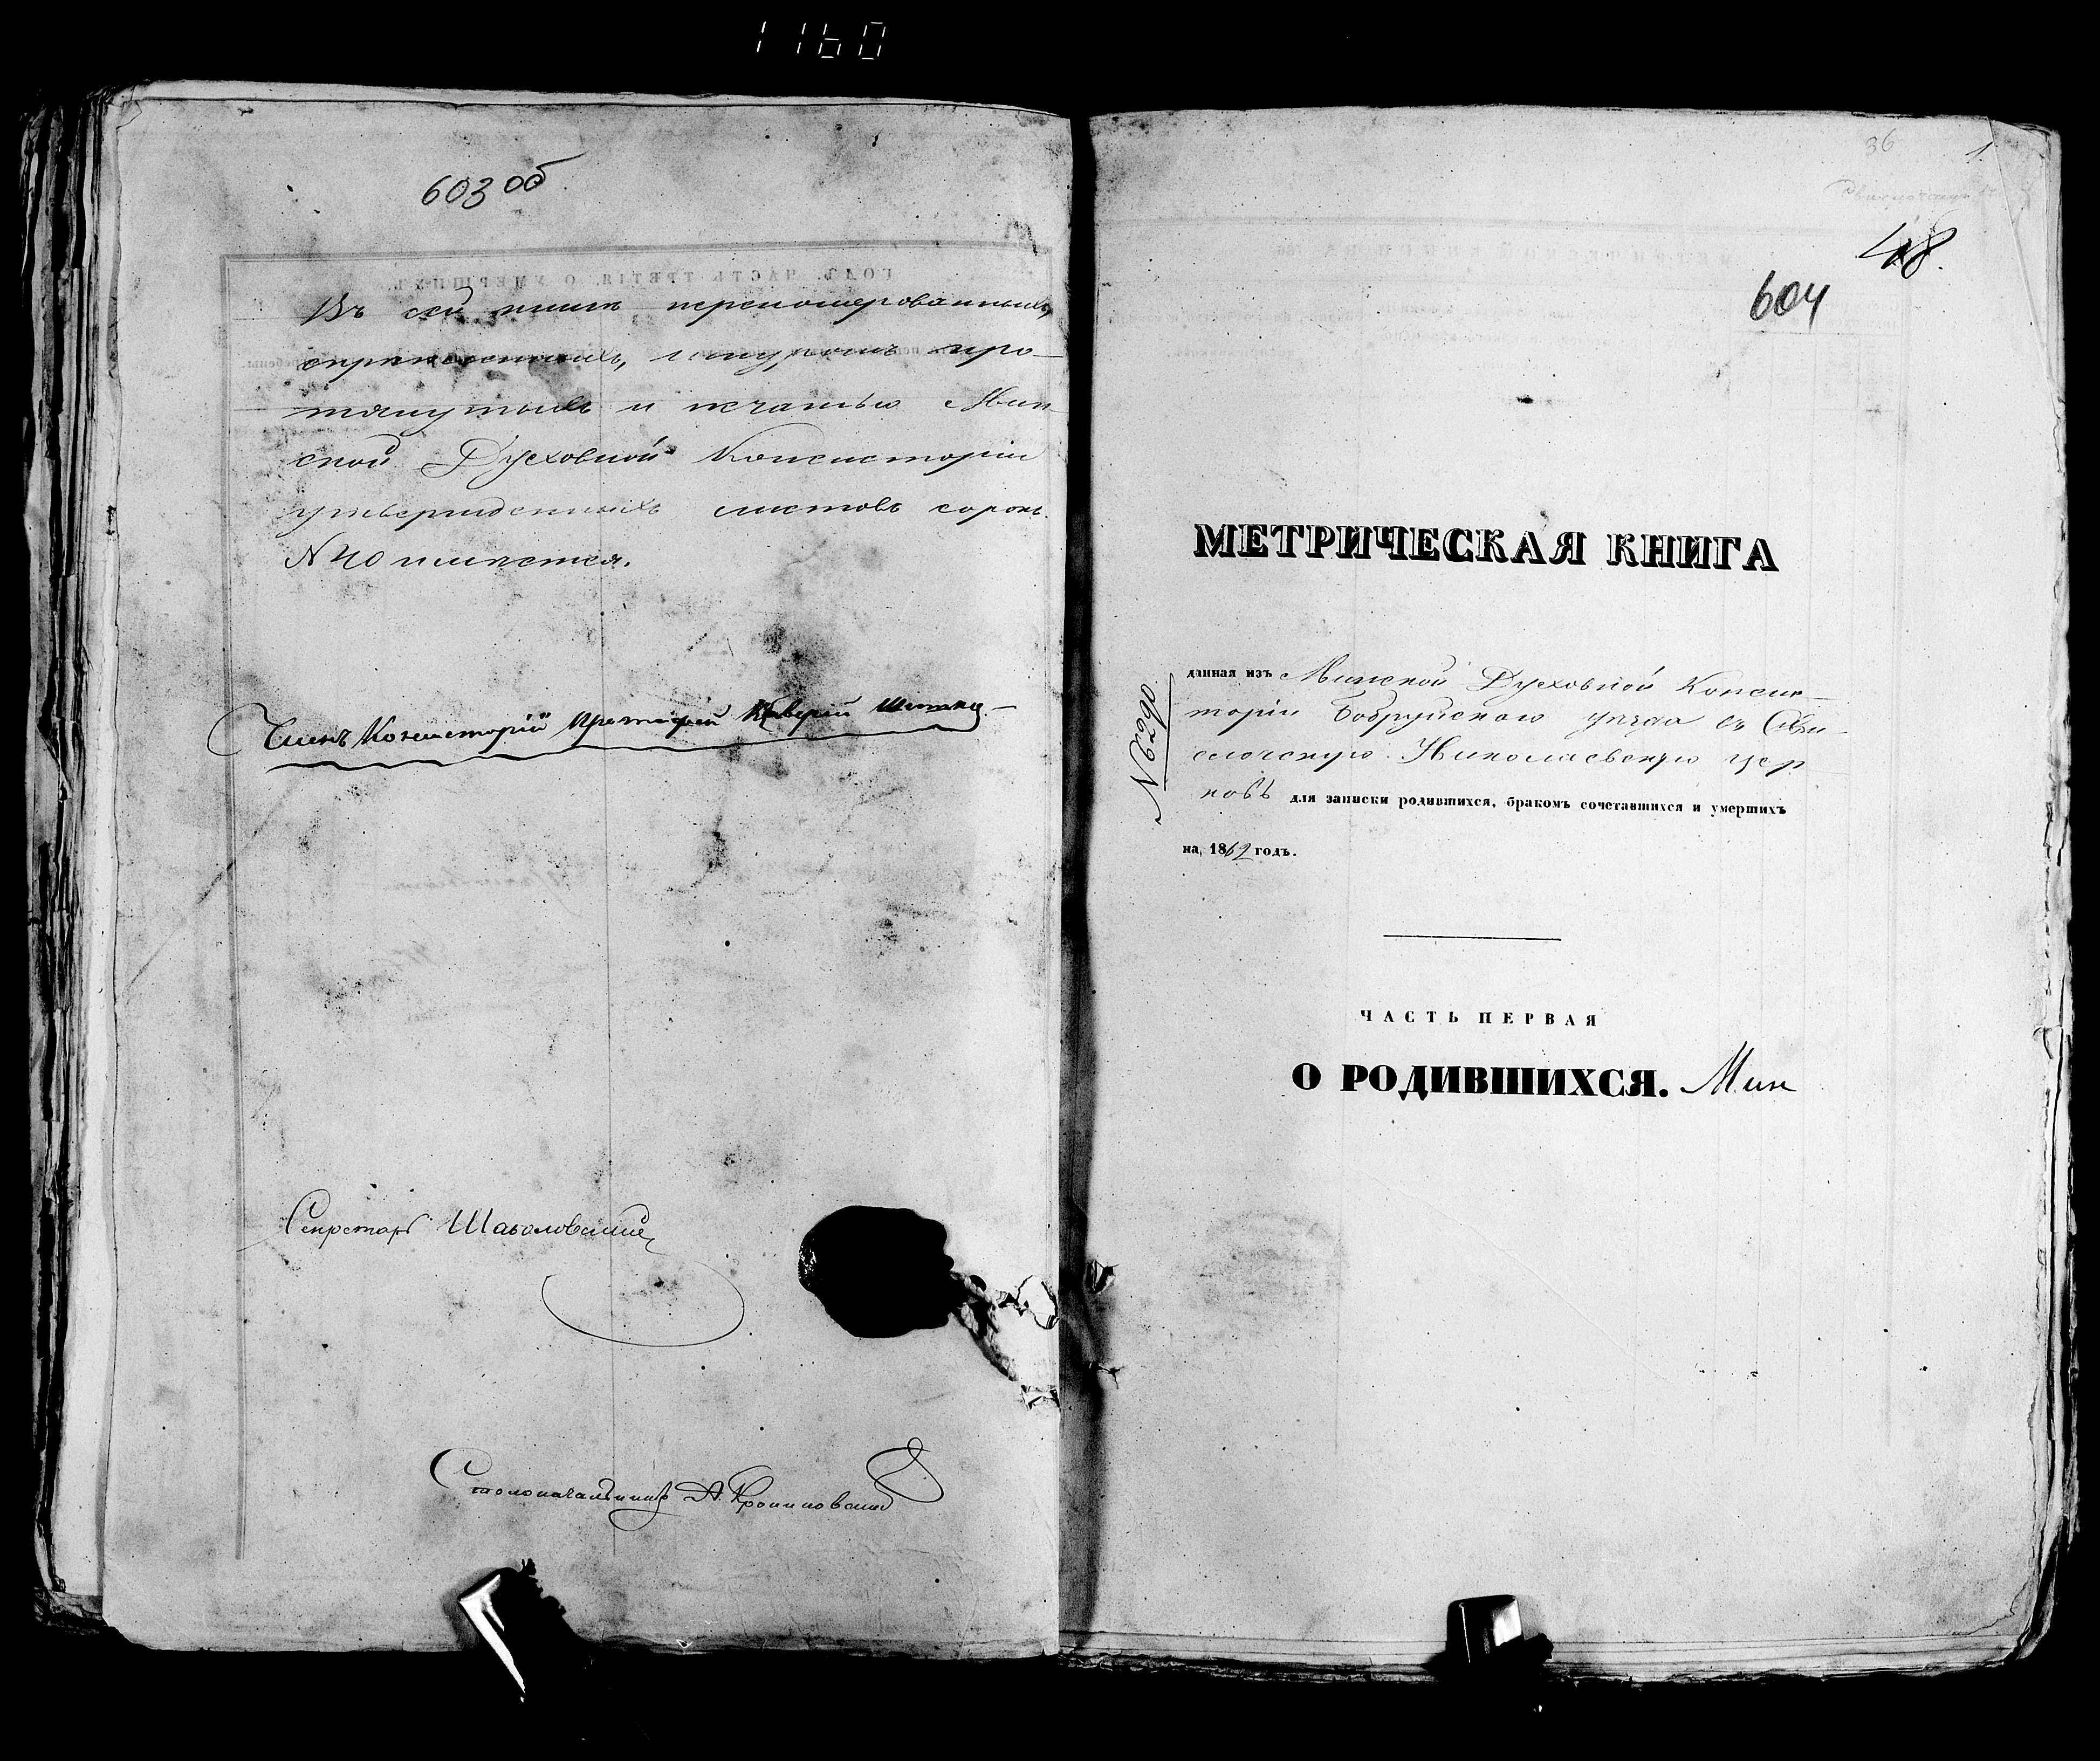 1160
603 об
Въ сей книгѣ переномерованныхъ,
скрѣпленныхъ, шнуромъ про-
тянутыхъ и печатью Мин
ской Духовной Консисторіи
утвержденныхъ листовъ сорокъ.
N 40 имѣется.
Членъ Консисторіи Протоіерей
Секретарь
Столоначальникъ А.
36
1.
48.
604
МЕТРИЧЕСКАЯ КНИГА
данная изъ Минской Духовной Консис-
торіи Бобруйскаго уѣзда въ Сви-
слочскую Николаевскую цер
ковь для записки родившихся, бракомъ сочетавшихся и умершихъ
на 1862 годъ.
№ 6290
ЧАСТЬ ПЕРВАЯ
О РОДИВШИХСЯ. Мин